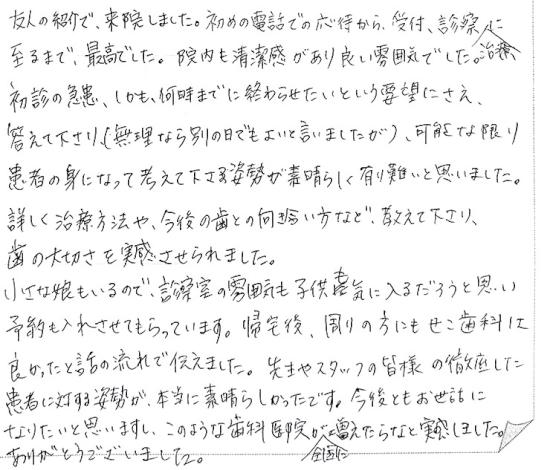 友人の紹介で、来院しました。初めの電話での応待から、受付、診察、治療に
至るまで、最高でした。院内も清潔感があり良い雰囲気でした。
初診の急患、しかも、何時までに終わらせたいという要望にさえ、
答えて下さり、(無理なら別の日でもよいと言いましたが)、可能な限り
患者の身になって考えて下さる姿勢が素晴らしく有り難いと思いました。
詳しく治療方法や、今後の歯との向き合い方など、教えて下さり、
歯の大切さを実感させられました。
小さな娘もいるので、診察室の雰囲気も子供気に入るだろうと思い
予約も入れさせてもらっています。帰宅後、周りの方にもせこ歯科は
良かったと話の流れで伝えました。先生やスタッフの皆様の徹底した
患者に対する姿勢が、本当に素晴らしかったです。今後ともお世話に
なりたいと思いますし、このような歯科医院が全国に増えたらなと実感しました。
ありがとうございました。